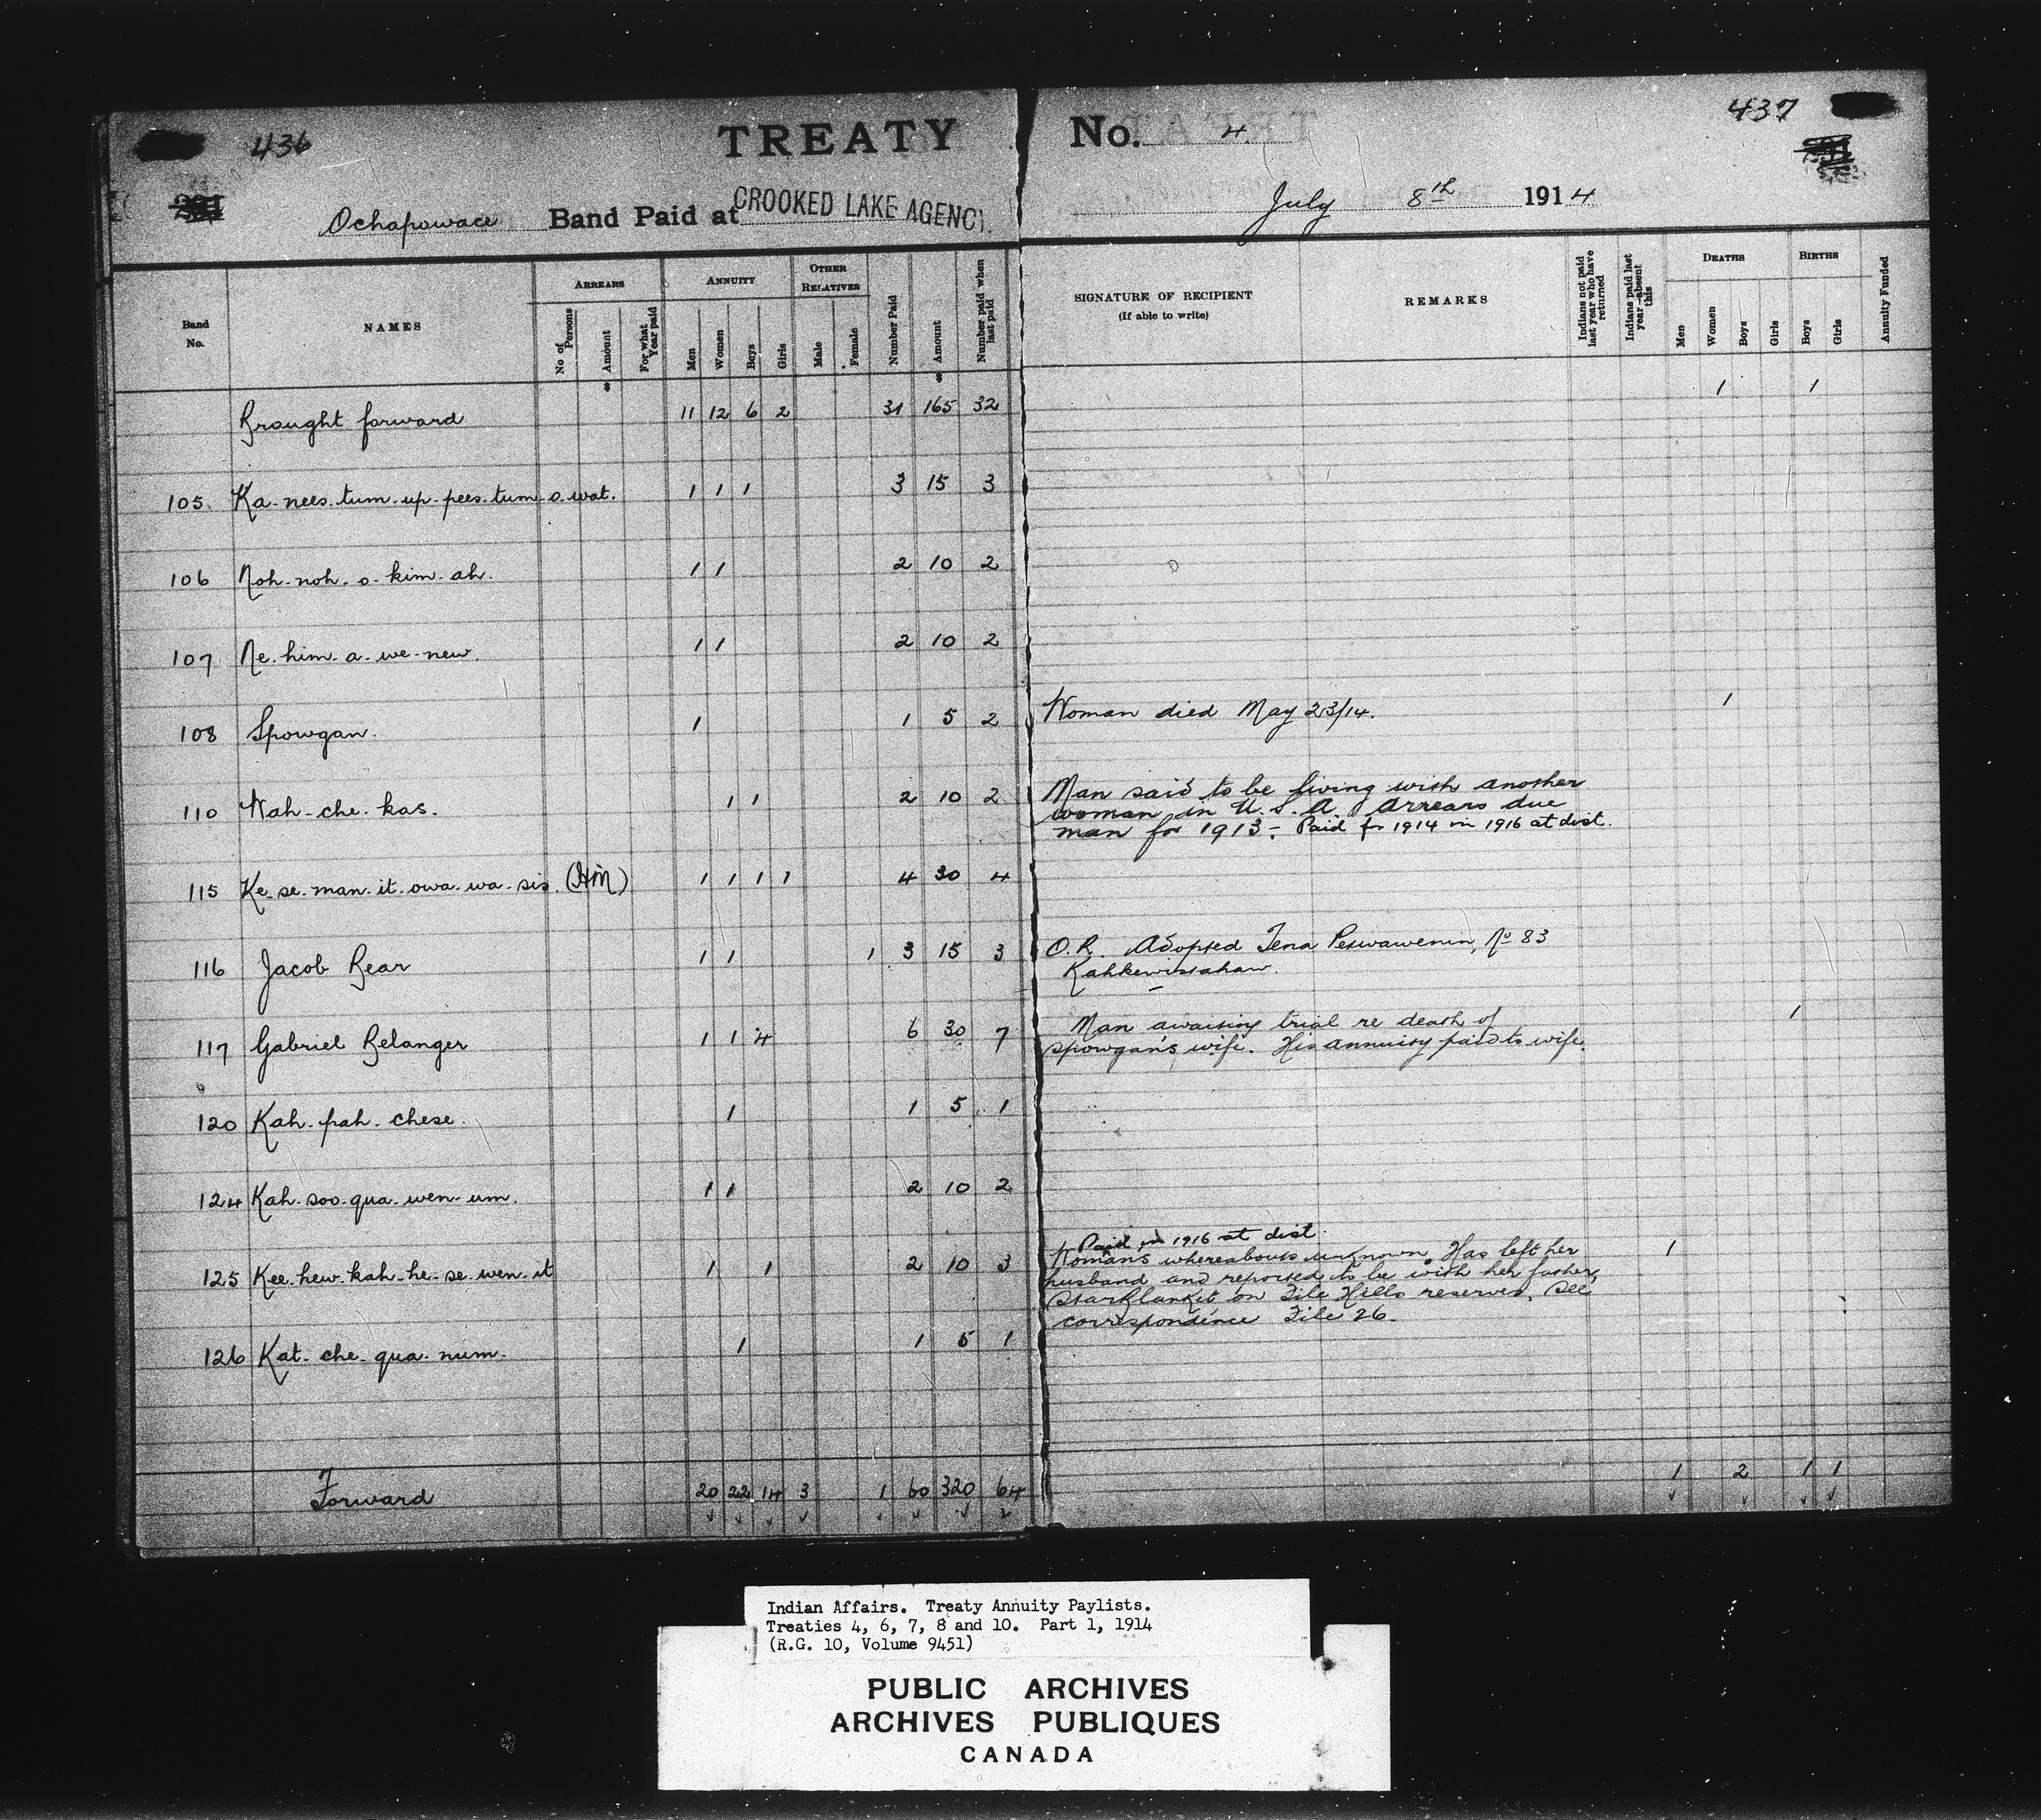 436
TREATY No. 4
437
Ochapowace Band Paid at CROOKED LAKE AGENCY. July 8th 1914
Band No.
NAMES
ARREARS
No of Persons
Amount
For what Year paid
ANNUITY
Men
Women
Boys
Girls
OTHER RELATIVES
Male
Female
Number Paid
Amount
Number paid when last paid
SIGNATURE OF RECIPIENT
(If able to write)
REMARKS
Indians not paid last year who have returned
Indians paid last year—absent this
DEATHS
Men
Women
Boys
Girls
BIRTHS
Boys
Girls
Annuity Funded
$ $
Brought forward 11 12 6 2 31 165 32 1 1
105. Ka-nees-tum-up-pees-tum-o-wat. 1 1 1 3 15 3
106 Noh-noh-o-kim-ah. 1 1 2 10 2
107 Ne-him-a-we-new. 1 1 2 10 2
108 Spowgan. 1 1 5 2 Woman died May 23/14. 1
110 Wah-che-kas. 1 1 2 10 2 Man said to be living with another
woman in U.S.A. Arrears due
man for 1913- Paid for 1914 in 1916 at dist.
115 Ke-se-man-it-owa-wa-sis. (HM) 1 1 1 1 4 30 4
116 Jacob Bear 1 1 1 3 15 3 O.R. Adopted Tena Peswawenin, No 83
Kahkewistahaw.
117 Gabriel Belanger 1 1 4 6 30 7 Man awaiting trial re death of 1
Spowgan's wife. His annuity paid to wife.
120 Kah-pah-chese. 1 1 5 1
124 Kah-soo-qua-wen-um. 1 1 2 10 2
Paid in 1916 at dist.
125 Kee-hew-kah-he-se-wen-it 1 1 2 10 3 Womans whereabouts unknown. Has left her 1
husband and reported to be with her father,
StarBlanket on File Hills reserve. See
correspondence File 26.
126 Kat-che-qua-num. 1 1 5 1
Forward 20 22 14 3 1 60 320 64 1 2 1 1
Indian Affairs. Treaty Annuity Paylists.
Treaties 4, 6, 7, 8 and 10. Part 1, 1914
(R.G. 10, Volume 9451)
PUBLIC ARCHIVES
ARCHIVES PUBLIQUES
CANADA